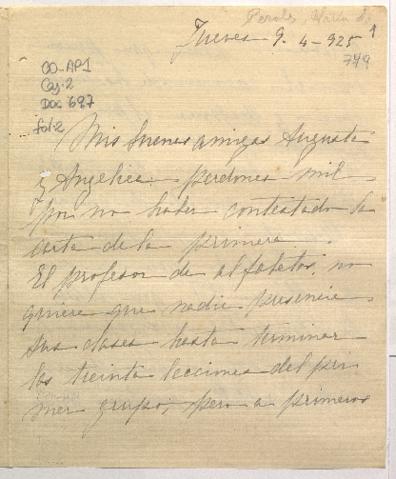 Perales, María S.
Jueves 9-4-925 1
749
OO-AP1
Caj-2
Doc 697
fol-2
Mis buenas amigas Augusta
y Angelica: perdones mil
por no haber contestado la
carta de la primera.
El profesor de alfabetos, no
quiere que nadie presencie
sus clases hasta terminar
las treinta lecciones del pri
mer grupo; pero a primeros